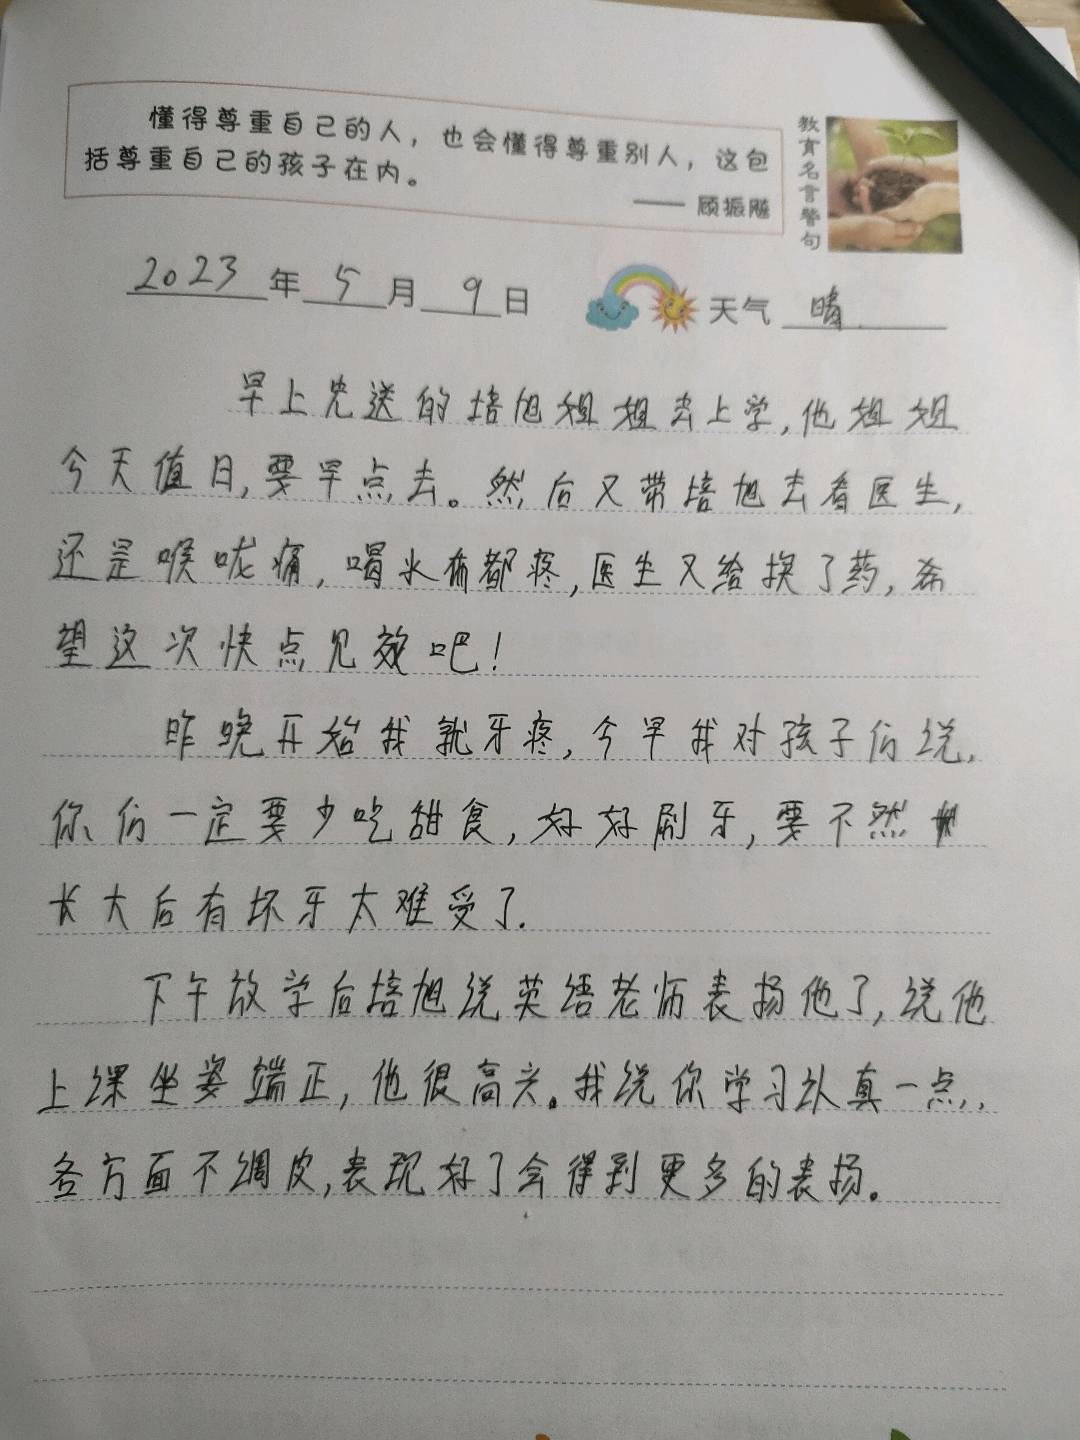 懂得尊重自己的人，也会懂得尊重别人，这包
括尊重自己的孩子在内。
—— 顾振飚
教育名言警句
2023年5月9日 天气 晴
早上先送的培旭姐姐去上学,他姐姐
今天值日,要早点去。然后又带培旭去看医生,
还是喉咙痛,喝水布都疼,医生又给换了药,希
望这次快点见效吧!
昨晚开始我就牙疼,今早我对孩子们说,
你们一定要少吃甜食,好好刷牙,要不然
长大后有坏牙太难受了.
下午放学后培旭说英语老师表扬他了,说他
上课坐姿端正,他很高兴。我说你学习认真一点,
各方面不调皮,表现好了会得到更多的表扬。